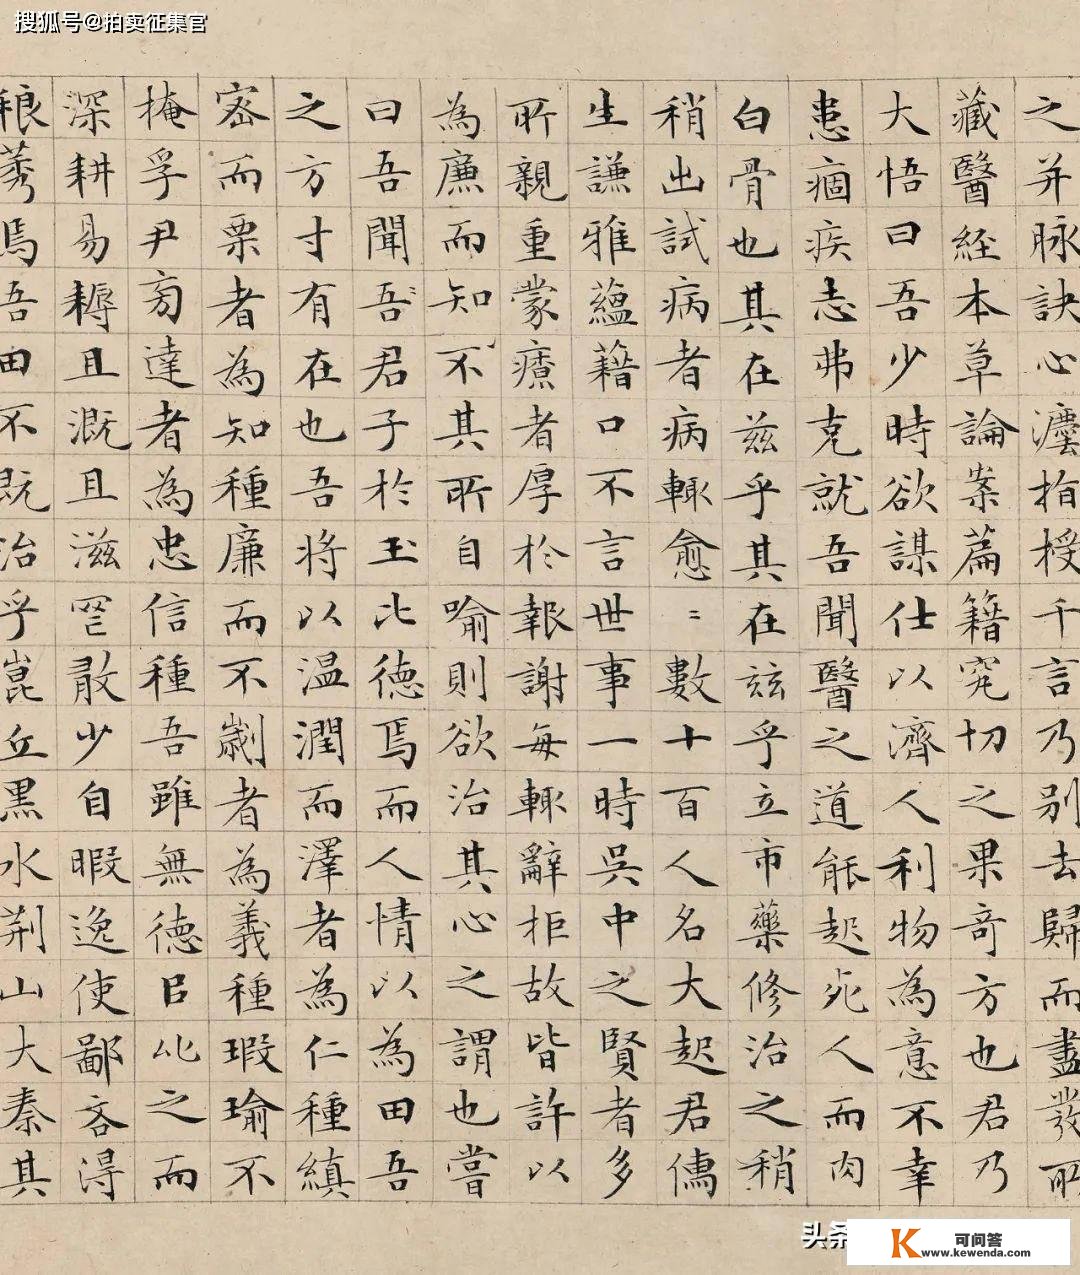 搜狐号@拍卖征集官
之并脉訣心瀍指授千言乃别去歸而盡發所
藏醫經本草論案篇籍究切之果奇方也君乃
大悟曰吾少時欲謀仕以濟人利物為意不幸
患痼疾志弗克就吾聞醫之道能起死人而肉
白骨也其在茲乎其在兹乎立市藥修治之稍
稍出試病者病輒愈〻數十百人名大起君儁
生謙雅蘊藉口不言世事一時吳中之賢者多
所親重蒙療者厚於報謝每輒辭拒故皆許以
為廉而知不其所自喻則欲治其心之謂也嘗
曰吾聞吾君子於玉比徳焉而人情以為田吾
之方寸有在也吾將以温潤而澤者為仁種縝
宻而栗者為知種廉而不劌者為義種瑕瑜不
掩孚尹旁達者為忠信種吾雖無徳㠯此之而
深耕易耨且溉且滋罔敢少自暇逸使鄙吝得
稂莠焉吾田不既治乎崑丘黒水荆山大秦其
头条
K 可问答
www.kewenda.com